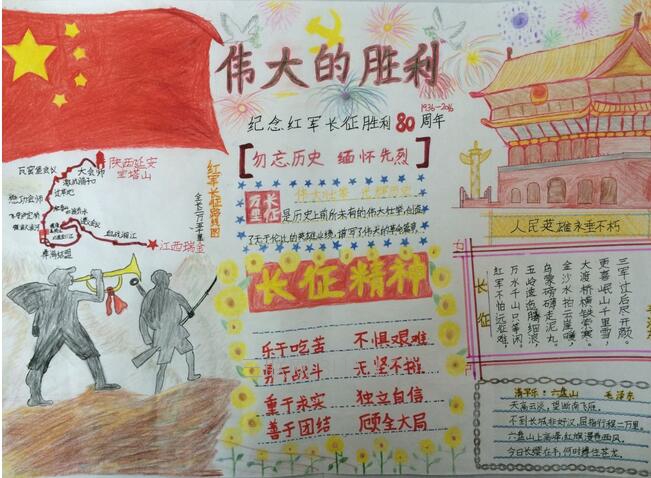 伟大的胜利
1936-2016
纪念红军长征胜利80周年
[勿忘历史 缅怀先烈]
伟大壮举 光辉历史
万里
长征
是历史上前所未有的伟大壮举,创造
了无与伦比的英雄业绩,谱写了伟大的革命篇章
长征精神
乐于吃苦 不惧艰难
勇于战斗 无坚不摧
重于求实 独立自信
善于团结 顾全大局
瓦窑堡会议
大会师
陕西延安
宝塔山
过草地
血战湘江
江西瑞金
红军长征路线图
全长二万五千里
人民英雄永垂不朽
长征
红军不怕远征难,
万水千山只等闲
五岭逶迤腾细浪,
乌蒙磅礴走泥丸。
金沙水拍云崖暖,
大渡桥横铁索寒。
更喜岷山千里雪,
三军过后尽开颜。
清平乐·六盘山 毛泽东
天高云淡,望断南飞雁。
不到长城非好汉,屈指行程二万里。
六盘山上高峰,红旗漫卷西风。
今日长缨在手,何时缚住苍龙。